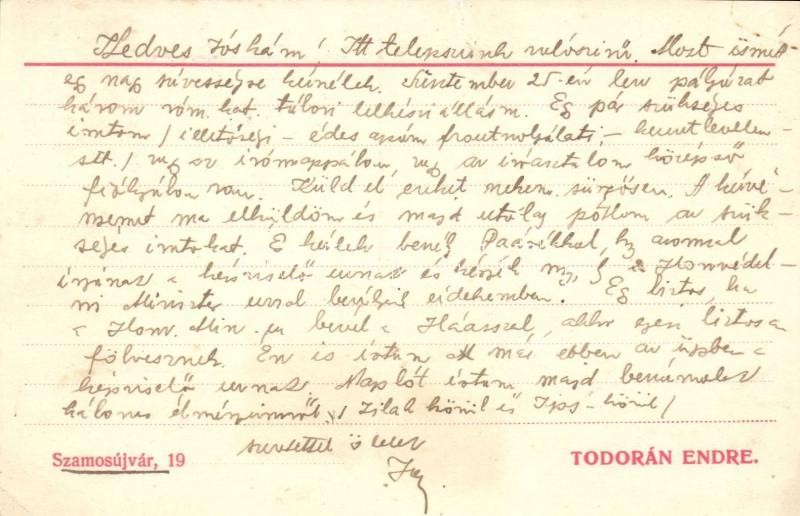 Kedves Jóskám! Itt telepszünk valószinű. Most ismét
egy nagy szívességre kérnélek. Szeptember 25-én lesz pályázat
három róm. kat. tábori lelkészi állásra. Egy pár szükséges
iratom / illetőségi - édes apám frontszolgálati, - keresztlevelem
stb. / vagy az irómappában vagy az iróasztalom középső
fiókjában van. Küld el ezeket nekem sürgősen. A kérvé-
nyemet ma elküldöm és majd utólag pótlom az szük-
séges iratokat. E kérlek beszélj Paárékkal, hogy azonnal
írjanak a képviselő urnak és kérjék meg, hogy a Honvédel-
mi Miniszter urral beszéljen érdekemben. Egy biztos, ha
a Honv. Min. úr beszél a Haásszal, akkor egész biztosan
fölvesznek. Én is írtam már ebben az ügyben a
képviselő urnak. Naplót írtam majd beszámolok
háborus élményeimről. / Zilah körül és Ipp-körül /
szeretettel ölellek
Szamosújvár, 19
TODORÁN ENDRE.